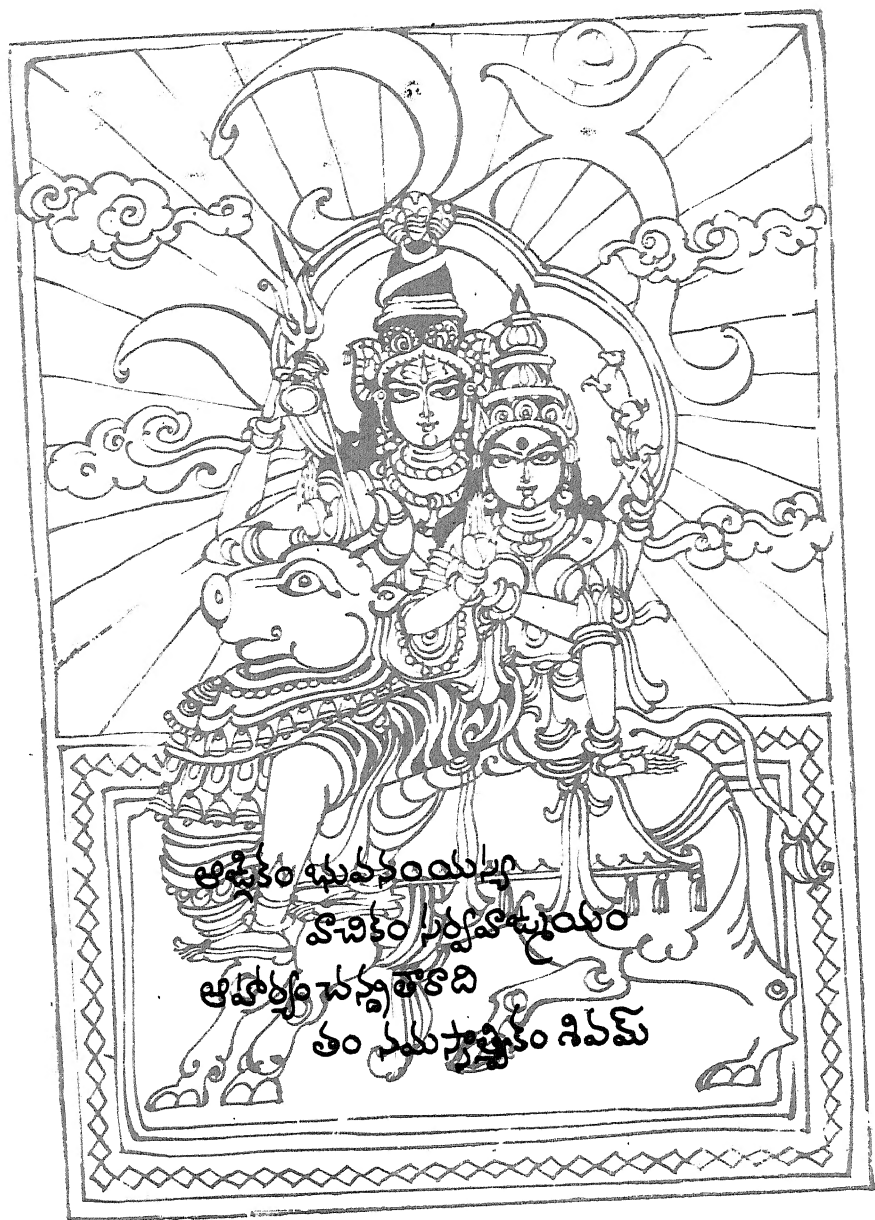 ఆఙ్గికం భువనంయస్య
వాచికం సర్వవాఙ్మయం
ఆహార్యం చన్ద్రతారాది
తం నమస్సాత్త్వికం శివమ్